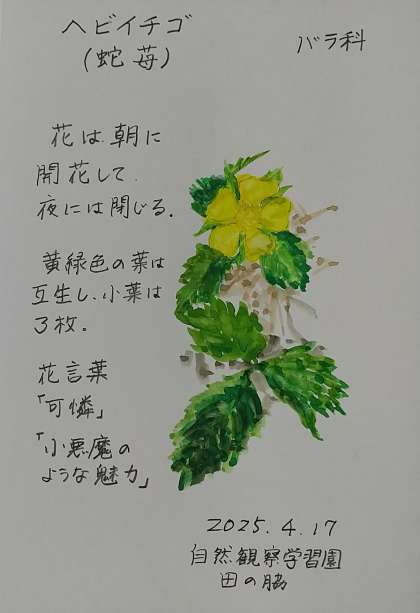 ヘビイチゴ
(蛇苺)
バラ科
花は朝に
開花して、
夜には閉じる。
黄緑色の葉は
互生し、小葉は
3枚。
花言葉
「可憐」
「小悪魔の
ような魅力」
2025.4.17
自然観察学習園
田の脇